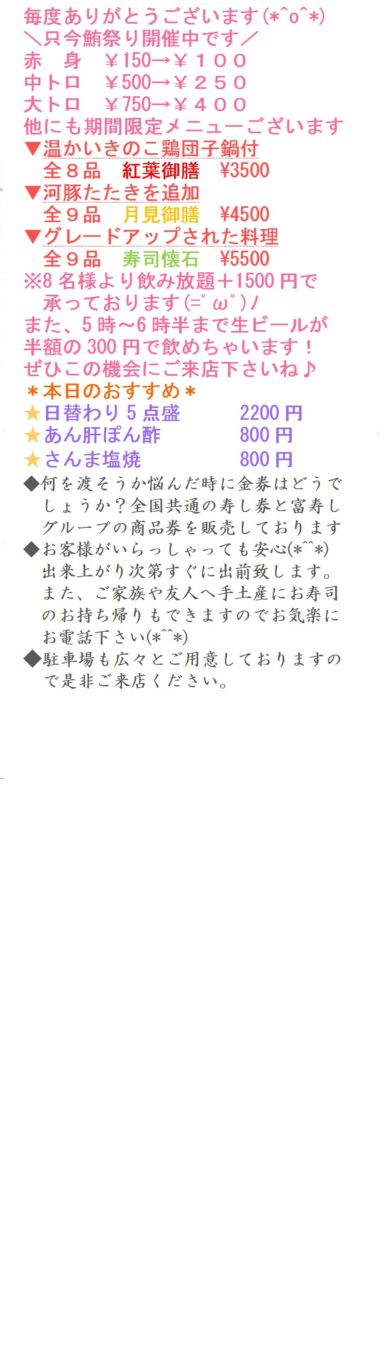 毎度ありがとうございます(*^o^*)
＼只今鮪祭り開催中です／
赤　身　￥150→￥１００
中トロ　￥500→￥２５０
大トロ　￥750→￥４００
他にも期間限定メニューございます
▼温かいきのこ鶏団子鍋付
全８品　紅葉御膳　¥3500
▼河豚たたきを追加
全９品　月見御膳　¥4500
▼グレードアップされた料理
全９品　寿司懐石　¥5500
※8 名様より飲み放題＋1500 円で
承っております(=ﾟωﾟ)ﾉ
また、5 時～6 時半まで生ビールが
半額の 300 円で飲めちゃいます！
ぜひこの機会にご来店下さいね♪
＊本日のおすすめ＊
★日替わり 5 点盛　　　2200 円
★あん肝ぽん酢　　　　800 円
★さんま塩焼　　　　　800 円
◆何を渡そうか悩んだ時に金券はどうで
しょうか？全国共通の寿し券と富寿し
グループの商品券を販売しております
◆お客様がいらっしゃっても安心(*^^*)
出来上がり次第すぐに出前致します。
また、ご家族や友人へ手土産にお寿司
のお持ち帰りもできますのでお気楽に
お電話下さい(*^^*)
◆駐車場も広々とご用意しておりますの
で是非ご来店ください。